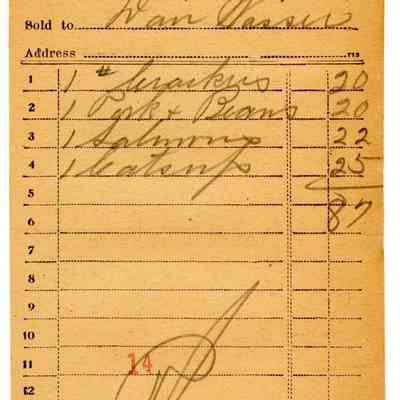 Sold to Dan Wasser
Address
1 1 # Crackers 20
2 1 Pork + Beans 20
3 1 Salmon 22
4 1 Catsup 25
5
6 87
7
8
9
10
11 14
12